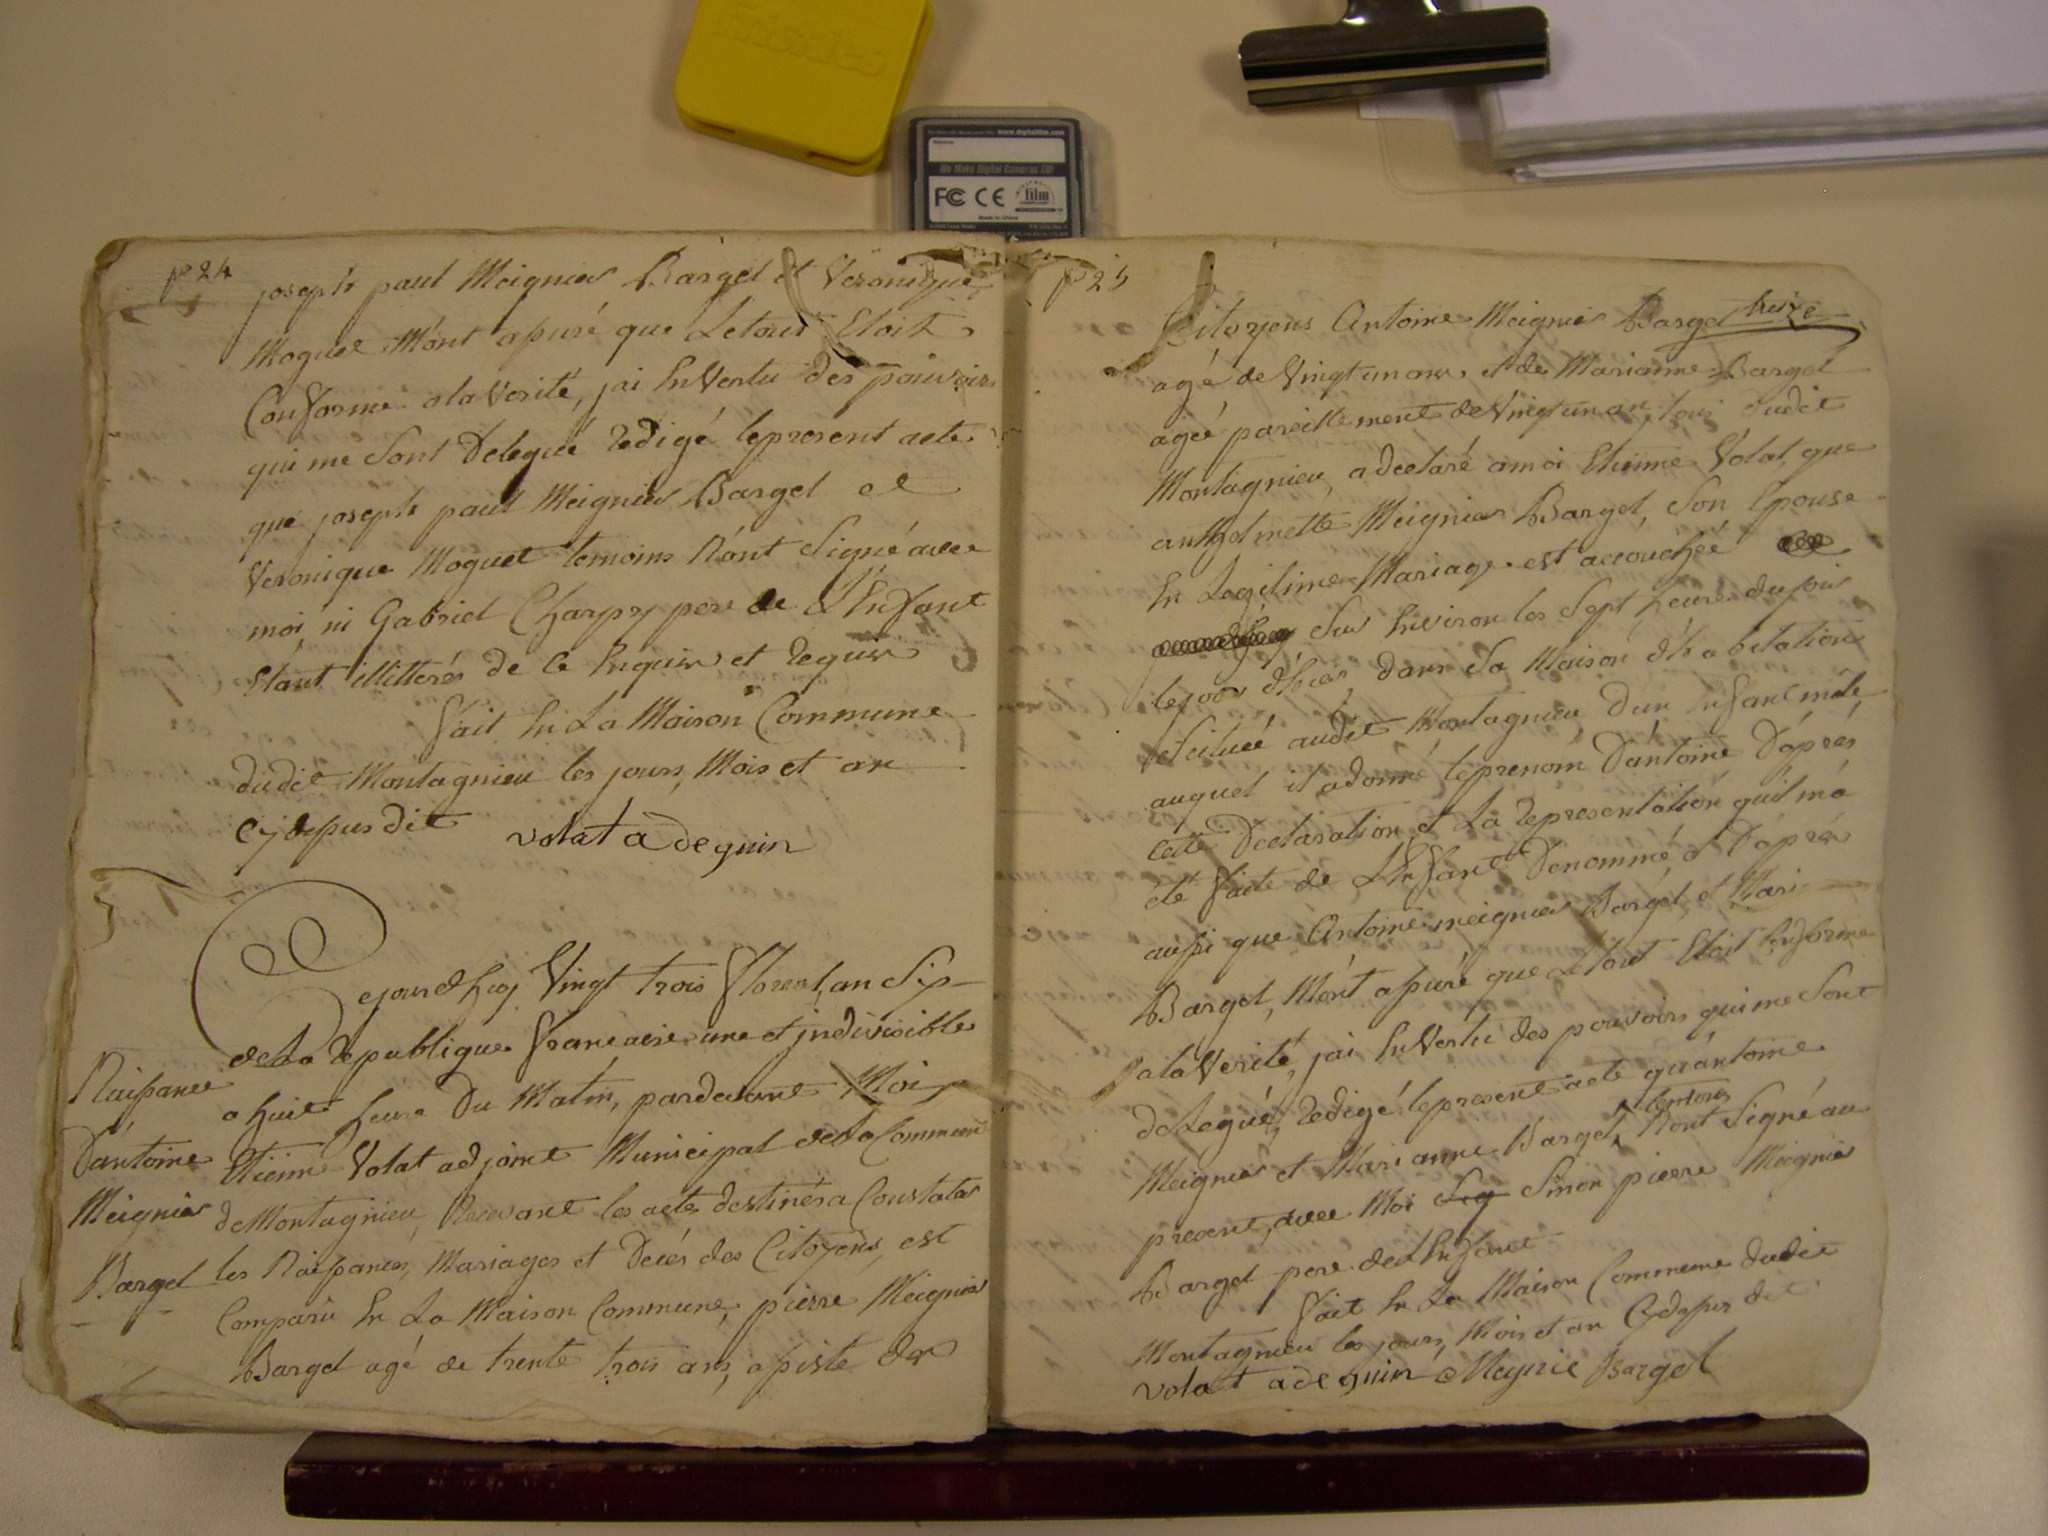 www.digitalfilm.com
We Make Digital Cameras
FC CE film
Made in China
p 24
joseph paul Meignier Bargel et Veronique
Moguet M'ont apuré que Letout Etoit
Conforme alaVerité, jai EnVertu des pouvoirs
qui me Sont Delegué redigé lepresent acte
que joseph paul Meignier Bargel et
Veronique Moguet temoins N'ont Signé avec
moi, ni Gabriel Charpy pere de L'Enfant
Etant illitterés de Ce Enquis et requis
Fait En La Maison Commune
dudit Montagnieu les jours, Mois et an
Cydepus dit
volat adeguin
Cejourdhuy Vingt trois Floreal, an Sip
dela republique francaise une et indivisible
a huit heure Du Matin, pardevant Moi
Etienne Volat adjoint Municipal dela Commune
deMontagnieu, Recevant les actes destinés a Constater
les Naipances, Mariages et Decés des Citoyens, est
Comparu En La Maison Commune, pierre Meignier
Bargel agé de trente trois ans, apisté de
Naipance
D'antoine
Meignier
Bargel
p 25
treize
Citoyens Antoine Meignier Bargel
agé de Vingt un ans et de Marianne Bargel
ageé pareillement deVingt un an, tous dudit
Montagnieu, a declaré a moi Etienne Volat, que
anthelmette Meignier Bargel, Son Epouse
En Legitime Mariage est accouchée
Sur Environ les Sept heure du soir
lejour d'hier, dans Sa Maison d'habitation
Scituée audit Montagnieu d'un Enfant mâle
auquel il adonné leprenom D'antoine D'áprés
cette Declaration et La representation quil m'a
été faite de L'Enfant Denommé, et D'après
aupi que Antoine meignier Bargel, et Mari
Bargel, M'ont apuré que Letout Etoit Conforme
alaVerité, jai EnVertu des pouvoirs qui me Sont
deLegué, redigé lepresent acte qu'antoine
Meignier et Marianne Bargel, N'ont Signé au
temoins
present, avec Moi Sig Sinon pierre Meignier
Bargel pere del'Enfant
Fait En La Maison Commune dudit
Montagnieu les jours, Mois et an Cydepus dit
volat adeguin Meynie Bargel